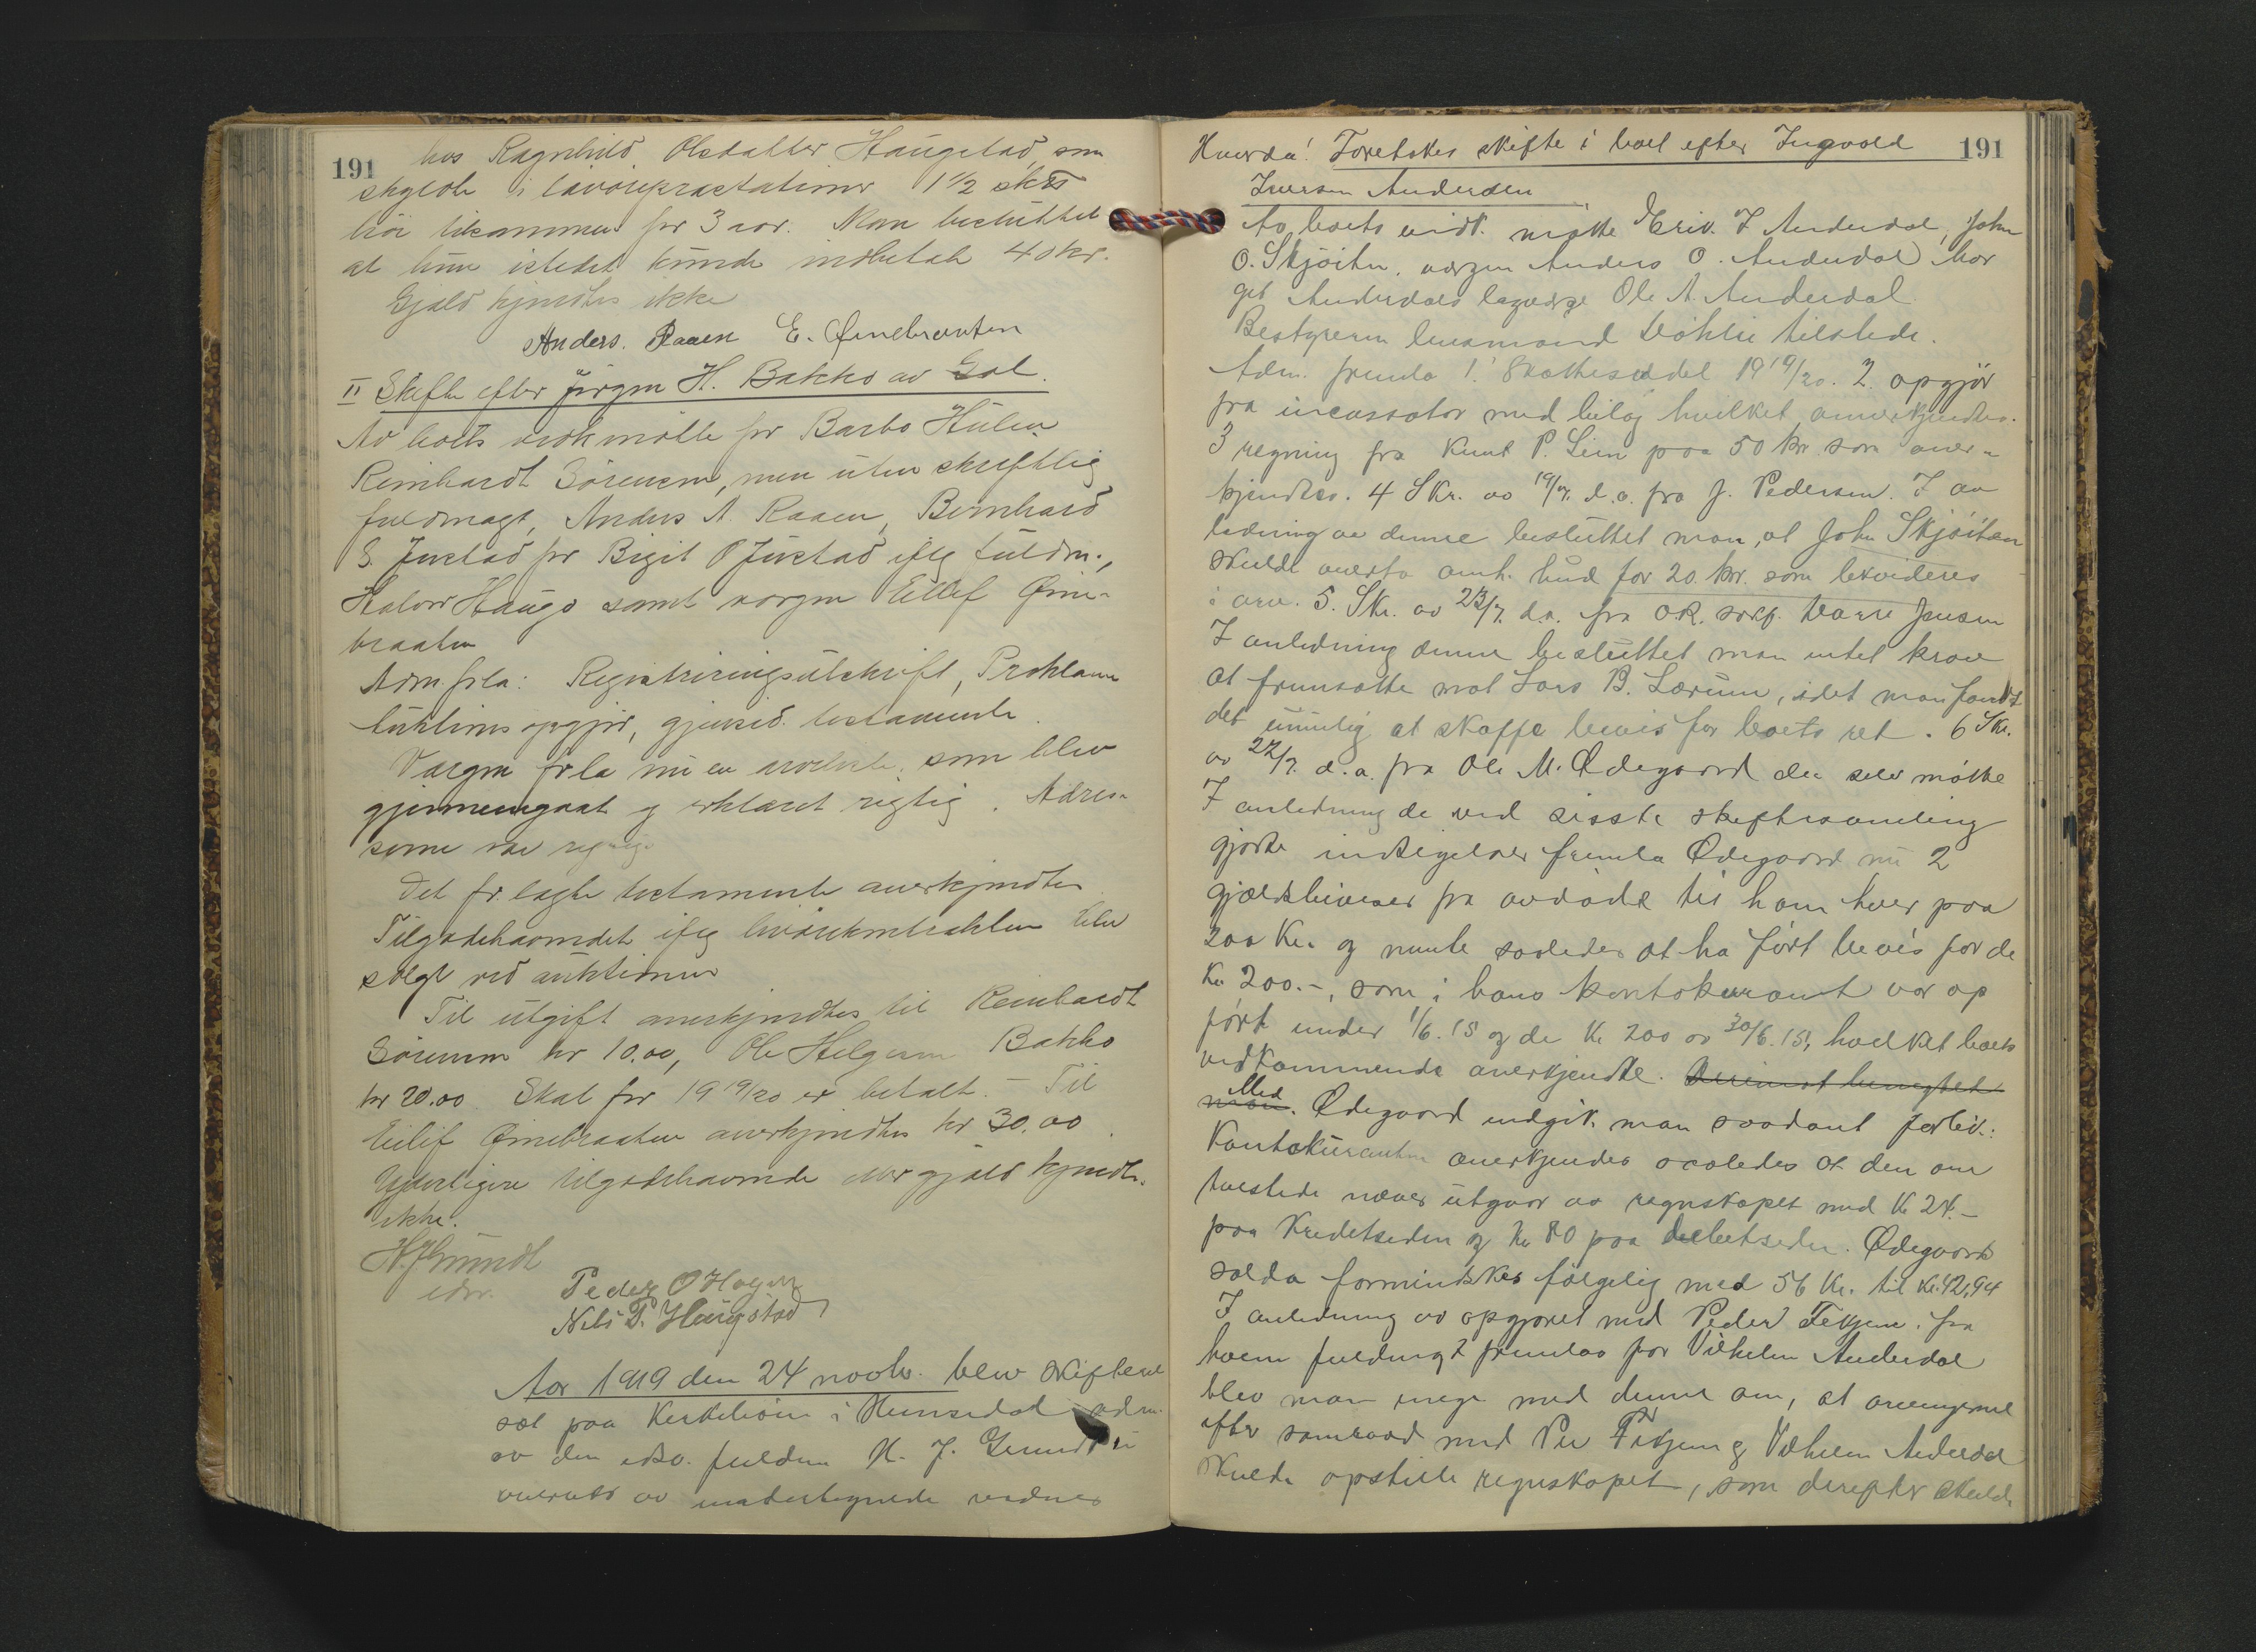 191
hos Ragnhild Olsdatter Haugstad, som
skylde i livøirepræstationer 1 1/2 skrs
høi tilsammen for 3 aar. Man besluttet
at hun istedet kunde indbetale 40 kr.
Gjæld kjendtes ikke
Anders. Raaen E. Ørnebraaten
II Skifte efter Jørgen H. Bakko av Gol.
Av boets vedk møtte for Barbo Hulen
Reinhardt Sørensen, men uten skriftlig
fuldmagt, Anders A. Raaen, Bernhard
S. Jurstad for Birgit O Jurstad iflg fuldm.,
Halvor Haugo samt vergen Eilef Ørne-
braaten
Adm. frla: Registreringsutskrift, Proklama
auktionsopgjør, gjensid. testamente.
Vergen frla nu en arveliste, som blev
gjennemgaat og erklæret rigtig. Adres-
serne var rigtige
Det fr. lagte testamente anerkjendtes.
Tilgodehavendet iflg livørekontrakten blev
solgt ved auktionen
Til utgift anerkjendtes til Reinhardt
Sørensen kr 10.00, Ole Helgesen Bakko
kr 20.00 Skat for 19 19/20 er betalt. - Til
Eilif Ørnebraaten anerkjendtes kr 30.00.
Yderligere tilgodehavende eller gjæld kjendtes
ikke.
H. J. Grundt
edsv. Peder O Hagen
Nils P. Haugstad
Aar 1919 den 24 novbr. blev skifteret
sat paa Kirkebøen i Hemsedal adm.
av den edsv. fuldm. H. J. Grundt i
overvær av undertegnede vidner
191
Hvorda! Foretokes skifte i boet efter Ingvald
Iversen Anderdal
Av boets vidk. møtte Eriv. I Anderdal, John
O. Skjøiten, vergen Anders O. Anderdal Mar
git Anderdals lagverge Ole A. Anderdal
Bestyreren lensmand Vøhlie tilstede.
Adm. fremla 1. Skatteseddel 19 19/20. 2. opgjør
fra incassator med bilag hvilket anerkjendtes.
3 regning fra Knut P. Lein paa 50 kr som aner-
kjendtes. 4 Skr. av 19/7. d.a. fra J. Pedersen. I an
ledning av denne besluttet man, at John Skjøiten
skulde overta omh. hud for 20. kr. som likvideres
i arv. 5. Skr. av 23/7. d.a. fra O.R. sakf. Jensen
I anledning denne besluttet man intet krav
at fremsætte mot Lars B. Lærum, idet man fandt
det umulig at skaffe bevis for boets ret. 6 Skr.
av 27/7. d.a. fra Ole M. Ødegaard der selv møtte
I anledning de ved sisste skiftesamling
gjorte indsigelser fremla Ødegaard nu 2
gjældsbeviser fra avdøde til ham hver paa
200 Kr. og mente saaledes at ha ført bevis for de
Kr 200.-, som i hans kontokurant var op
ført under 1/6. 15 og de Kr 200 av 30/6. 15, hvilket boets
vedkommende anerkjendte.
Med
Ødegaard indgik man saadant forlik:
Kontokuranten anerkjendes saaledes at den om
tvistede næver utgaar av regnskapet med Kr 24.-
paa Kreditsiden og Kr 80 paa debetsiden. Ødegaards
saldo formindskes følgelig med 56 Kr. til Kr. 42,94
I anledning av opgjøret med Peder Fekjene, fra
hvem fuldmagt fremlaa for Vilhelm Anderdal
blev man enige med denne om, at
efter samraad med Per Fekjene og Vilhelm Anderdal
skulde opstille regnskapet, som derefter skulde